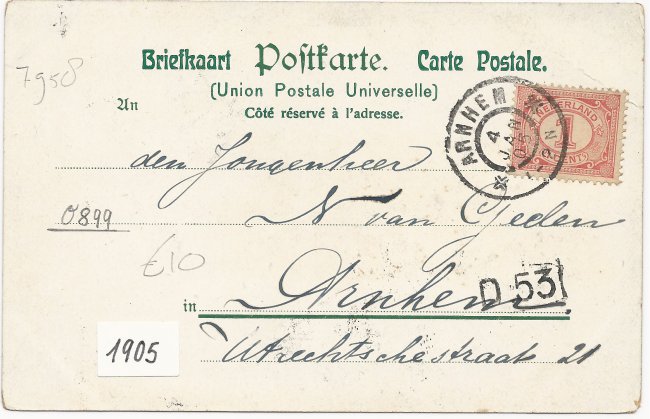 7958
Briefkaart Postkarte. Carte Postale.
(Union Postale Universelle)
Côté réservé à l'adresse.
An
ARNHEM
4
JAN
05
N
NEDERLAND
1
CENT
den Jongenheer
0899
N van Gelen
£10
in Arnhem.
D 53
1905
Utrechtschestraat 21